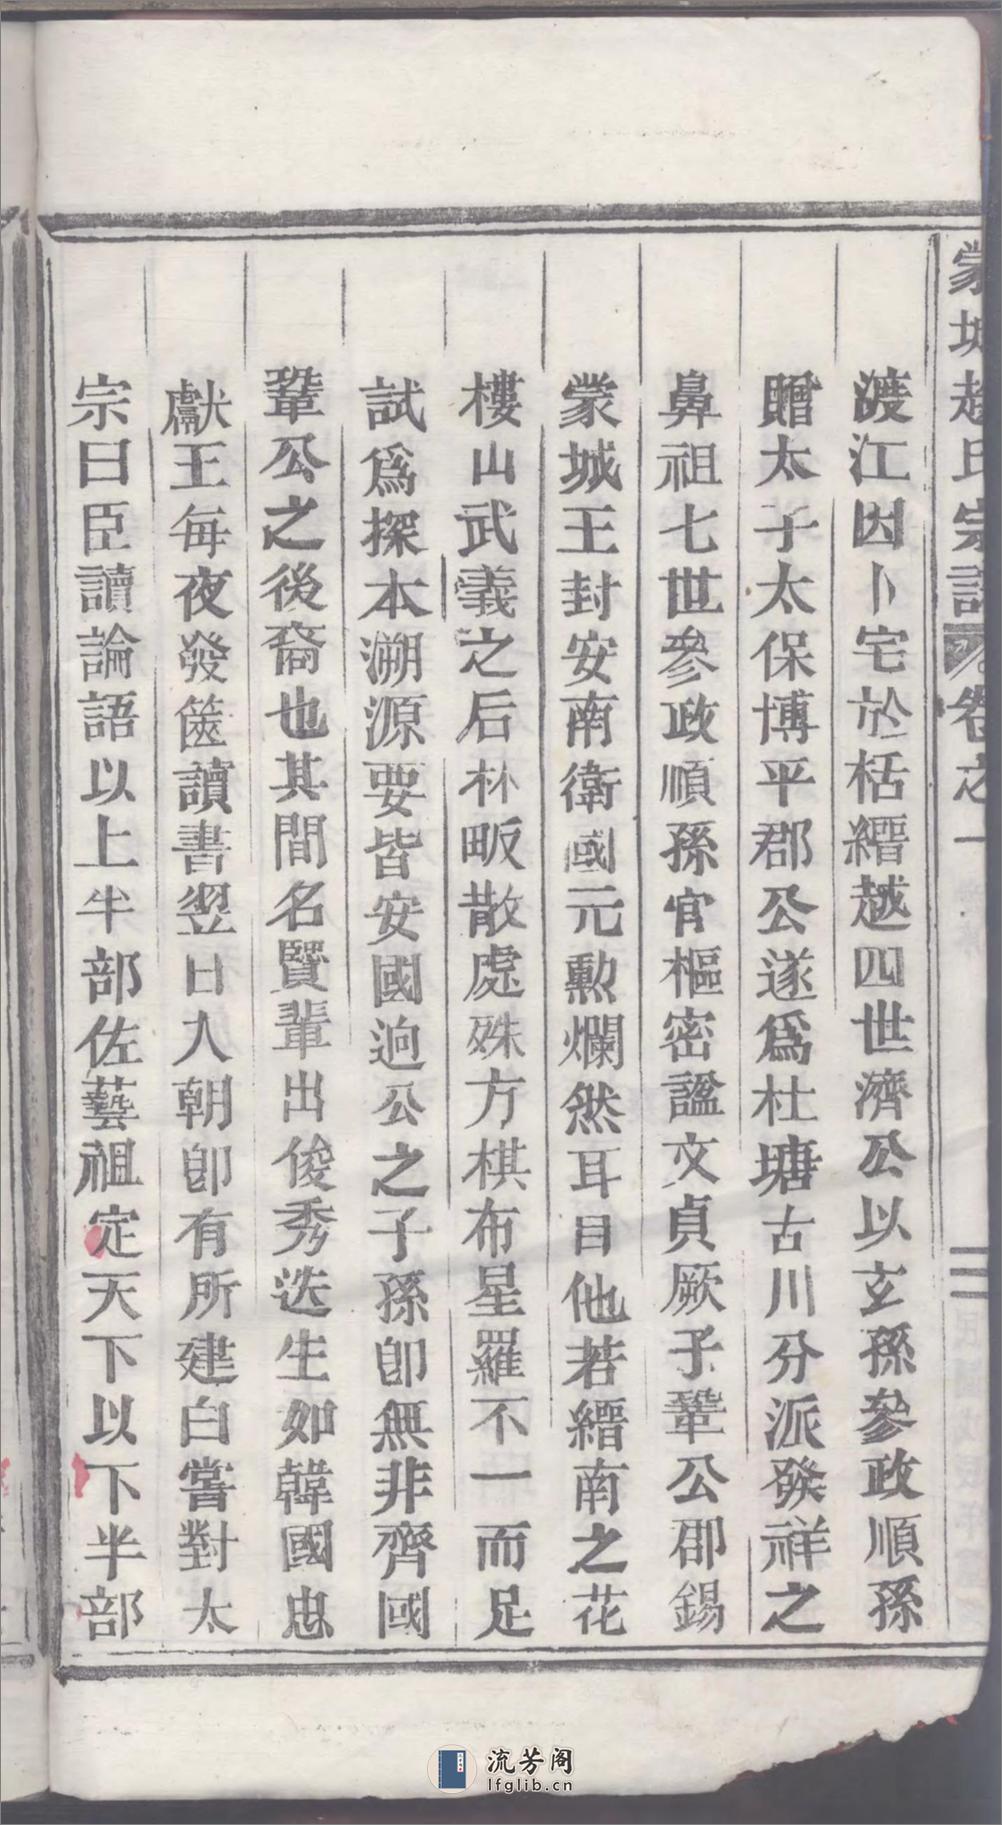 蒙城趙氏宗譜 卷之一 二
渡江因卜宅於栝縉越四世濟公以玄孫參政順孫
贈太子太保博平郡公遂爲杜塘古川分派發祥之
鼻祖七世參政順孫官樞密諡文貞厥子鞏公郡錫
蒙城王封安南衛國元勳爛然耳目他若縉南之花
樓山武義之后林畈散處殊方棋布星羅不一而足
試爲探本溯源要皆安國逈公之子孫卽無非齊國
鞏公之後裔也其間名賢輩出俊秀迭生如韓國忠
獻王每夜發篋讀書翌日入朝卽有所建白嘗對太
宗曰臣讀論語以上半部佐藝祖定天下以下半部
流芳阁
lfglib.cn